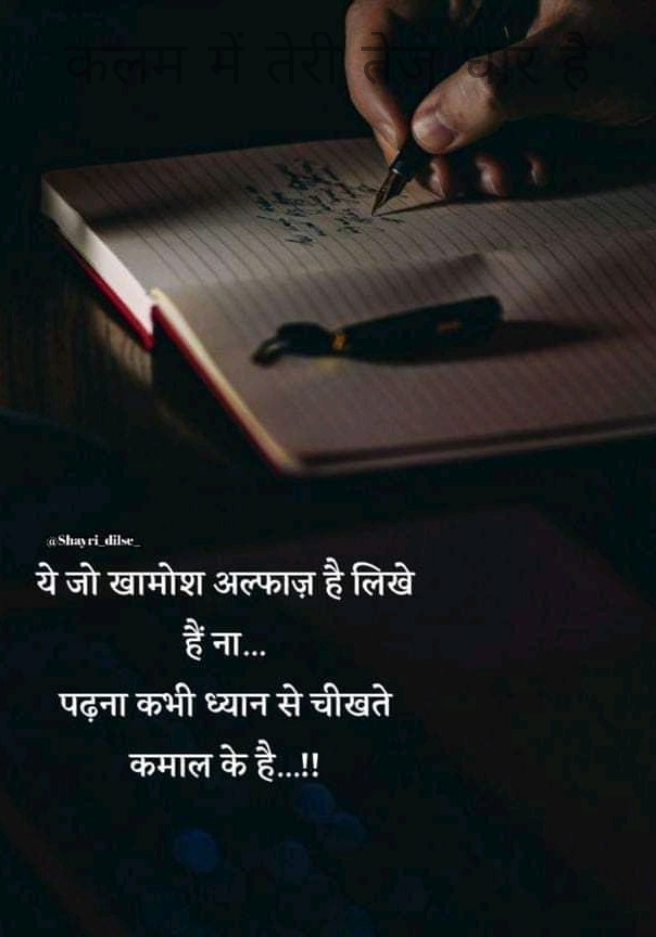 कलम में तेरी तेज धार है
@Shayri_dilse_
ये जो खामोश अल्फाज़ है लिखे
हैं ना...
पढ़ना कभी ध्यान से चीखते
कमाल के है...!!